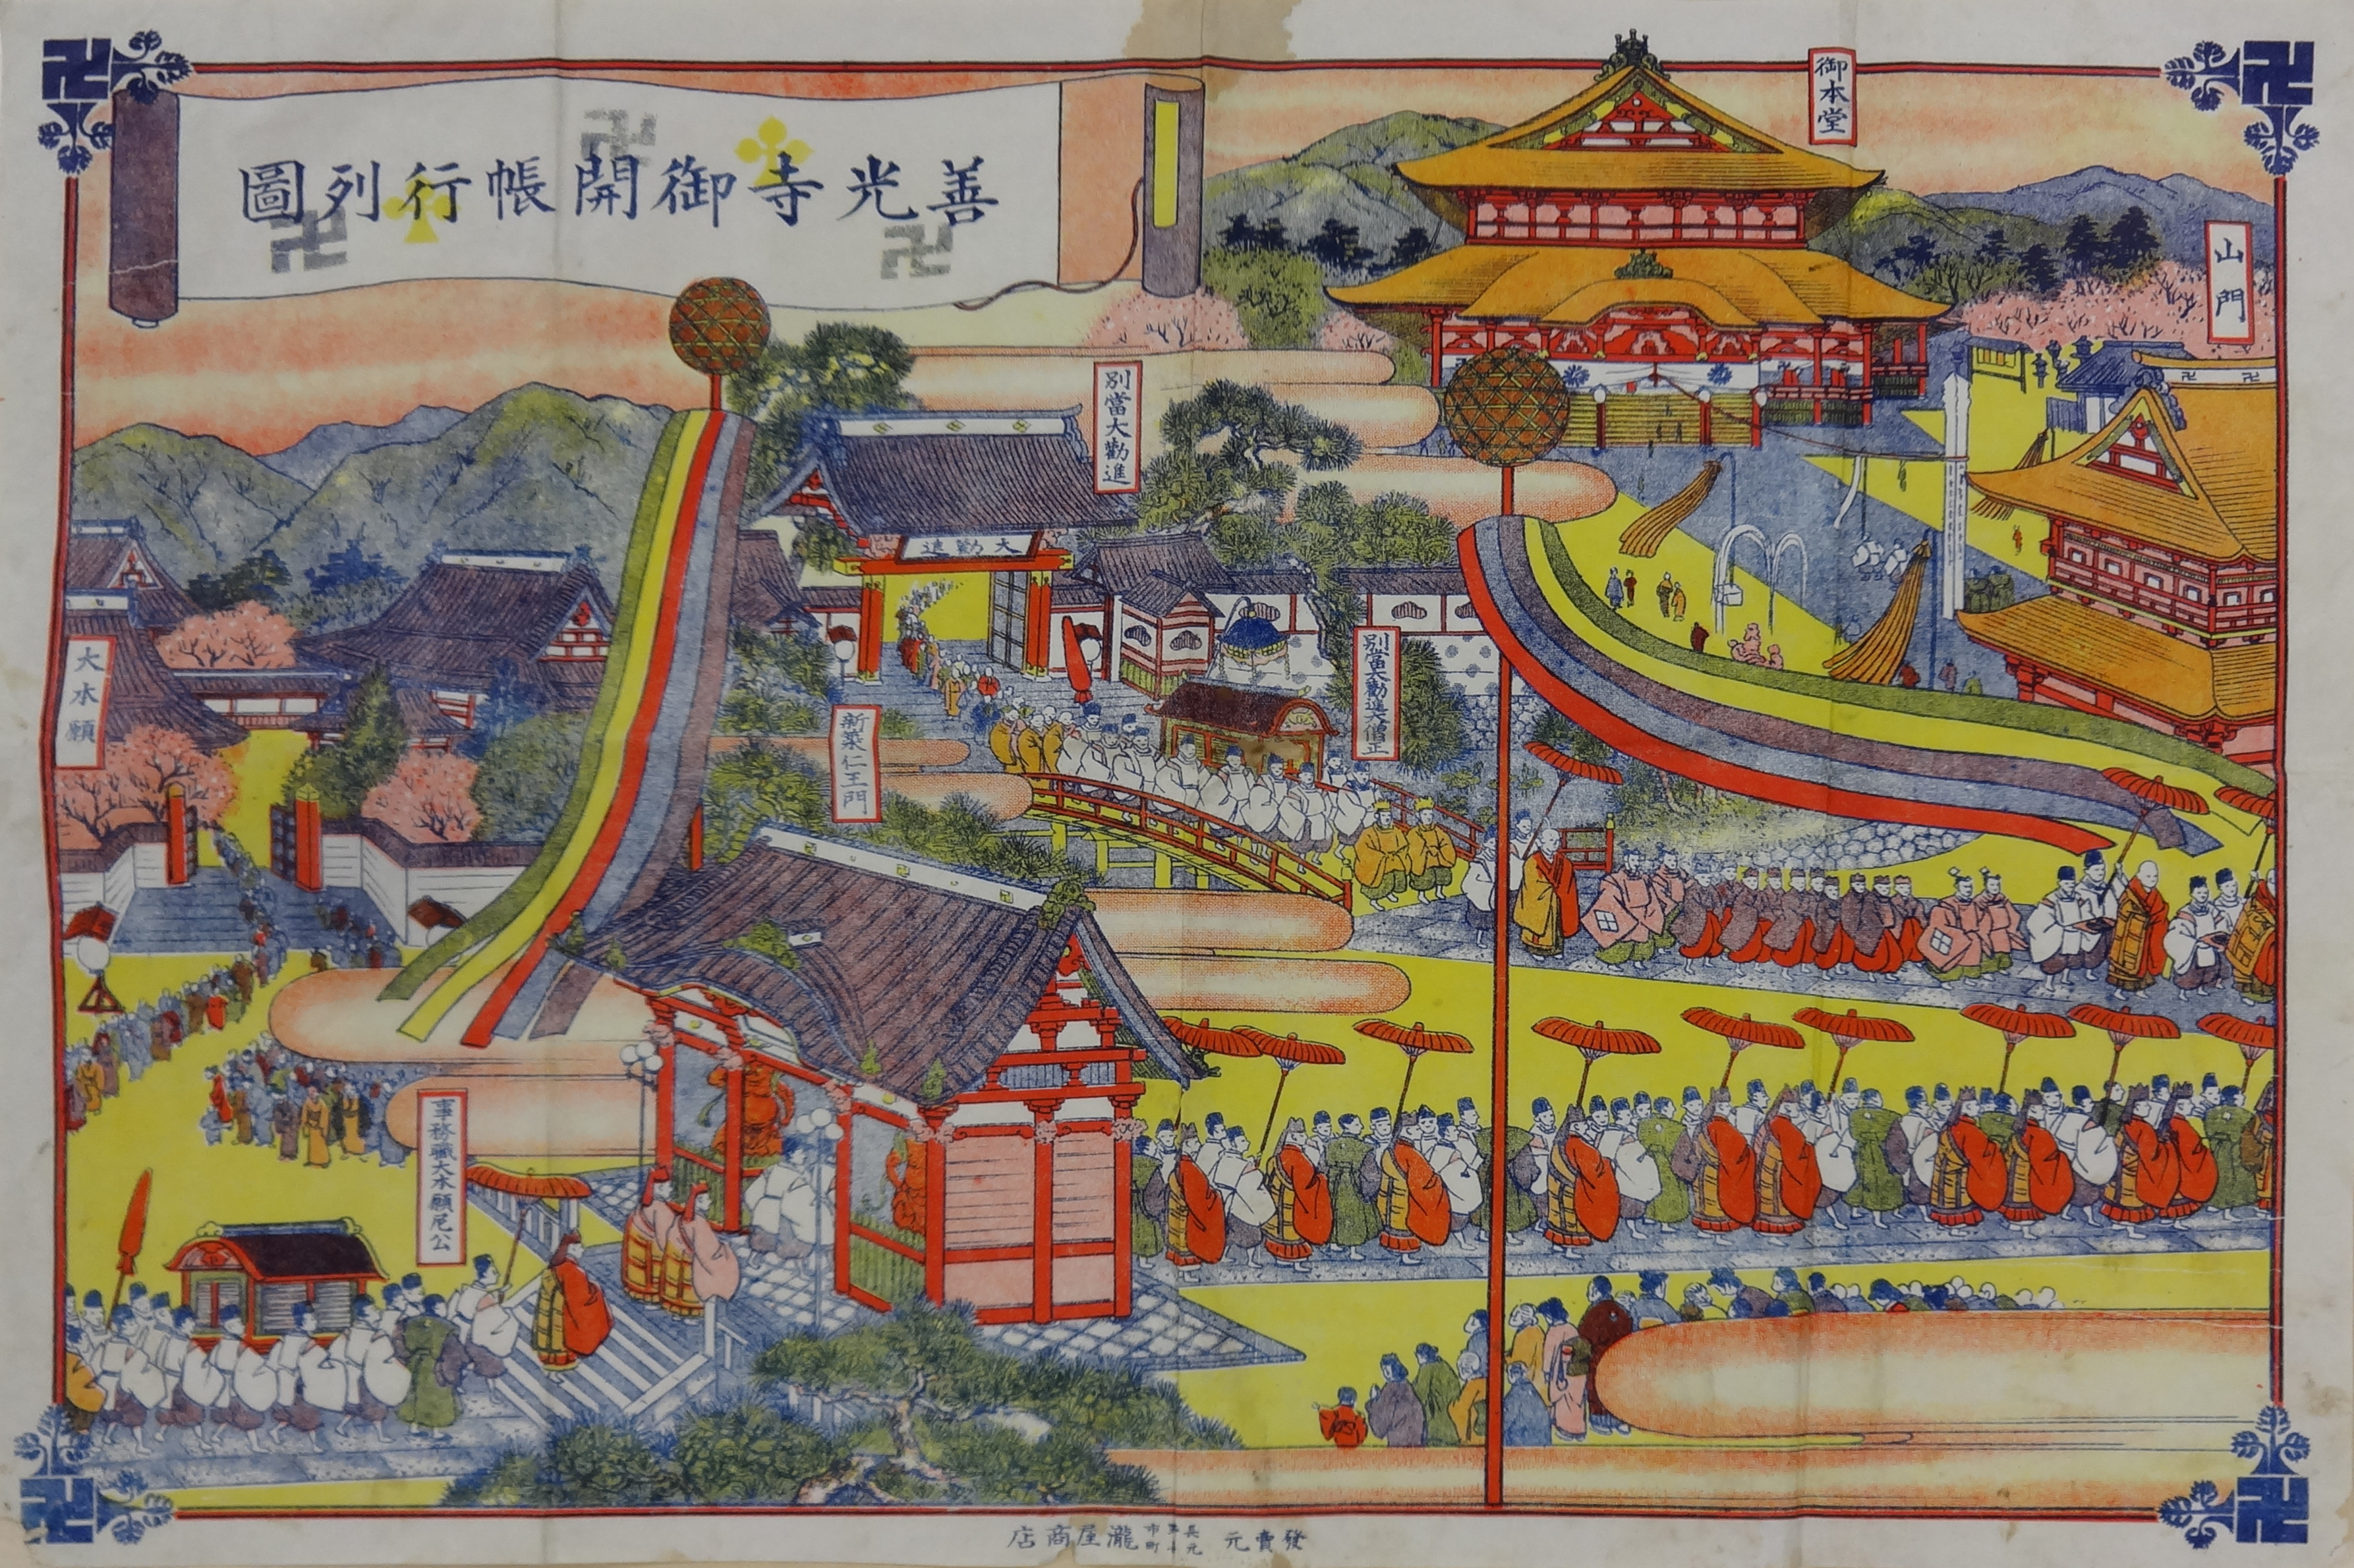 善光寺御開帳行列圖
御本堂
山門
別當大勸進
大勸進
別當大勸進大僧正
新築仁王門
大本願
事務職大本願尼公
發賣元
瀧屋商店